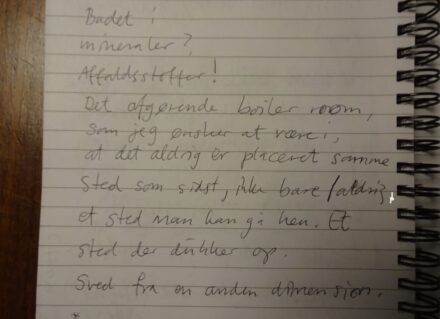 Badet i
mineraler?
Affaldsstoffer!
Det afgørende boiler room,
som jeg ønsker at være i,
at det aldrig er placeret samme
sted som sidst, ikke bare / aldrig,
et sted man kan gå hen. Et
sted der dukker op.
Sved fra en anden dimension.
*